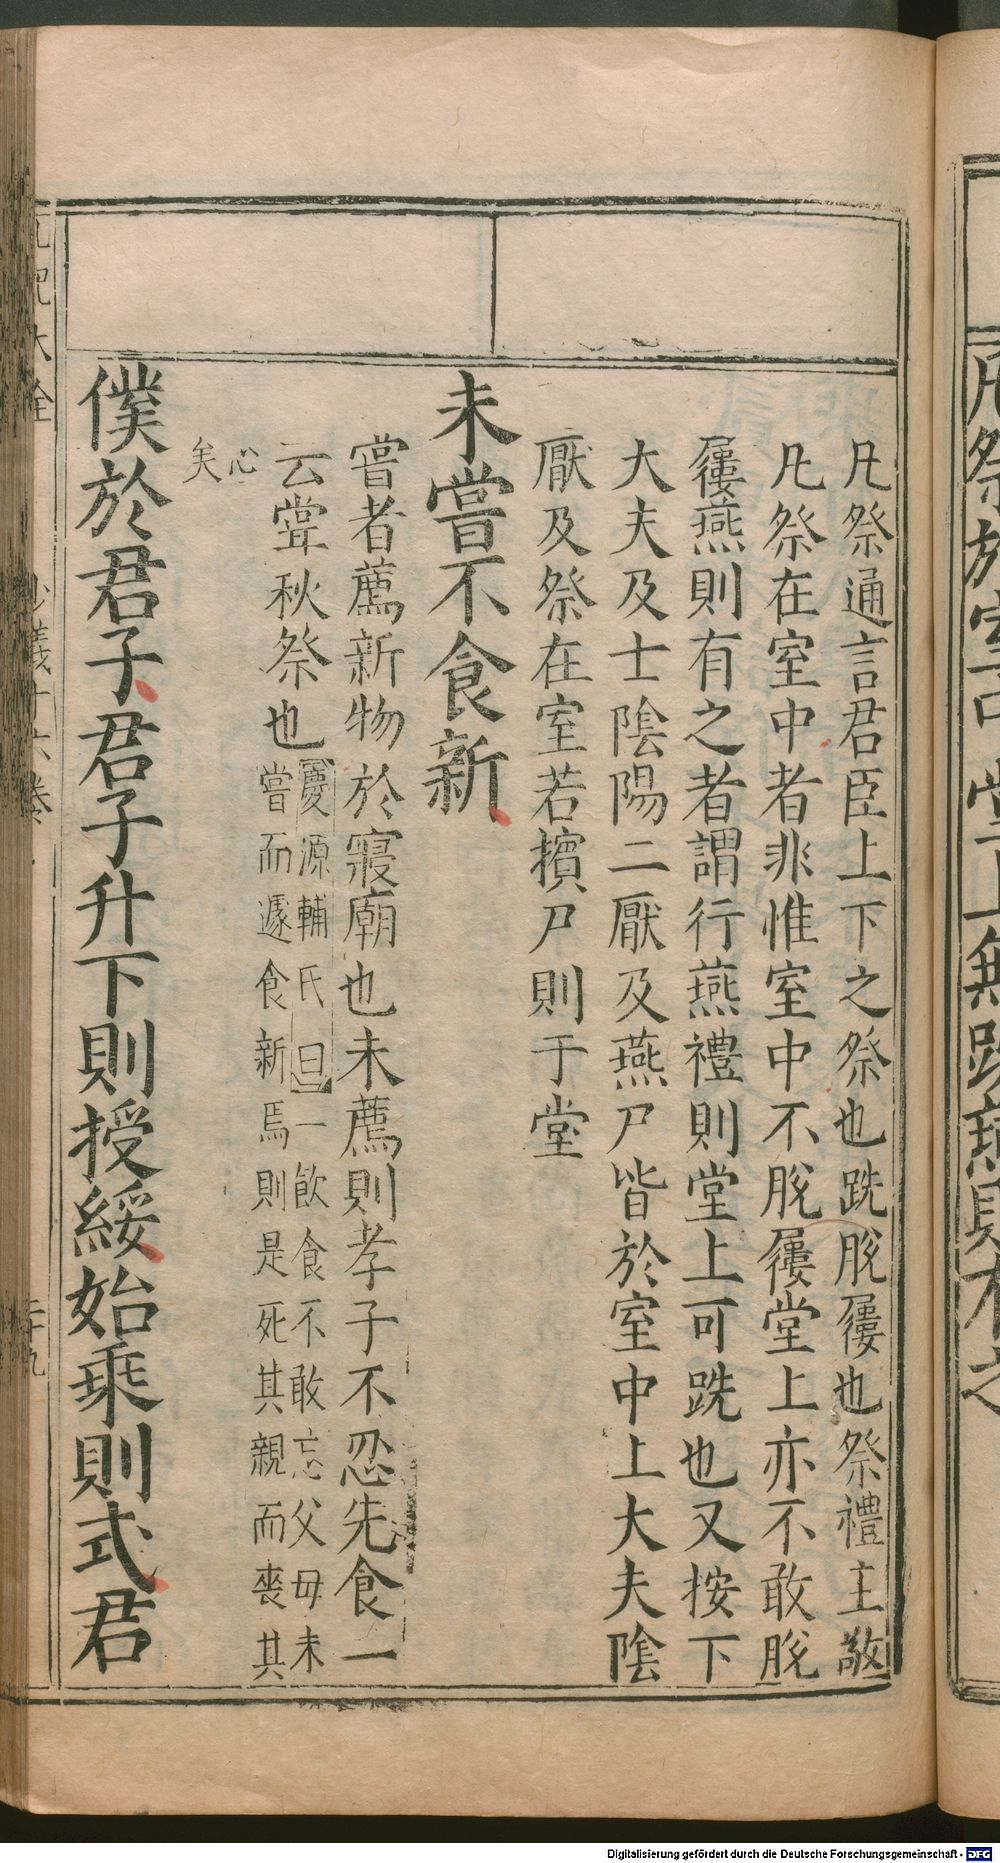 凡祭於室中堂上無跣燕則有之
凡祭通言君臣上下之祭也跣脫屨也祭禮主敬
凡祭在室中者非惟室中不脫屨堂上亦不敢脫
屨燕則有之者謂行燕禮則堂上可跣也又按下
大夫及士陰陽二厭及燕尸皆於室中上大夫陰
厭及祭在室若擯尸則于堂
未嘗不食新
嘗者薦新物於寢廟也未薦則孝子不忍先食一
云嘗秋祭也
慶源輔氏曰一飲食不敢忘父母未
嘗而遽食新焉則是死其親而喪其
心
矣
僕於君子君子升下則授綏始乘則式君
禮記大全
少儀十六卷
二十九
Digitalisierung gefördert durch die Deutsche Forschungsgemeinschaft - DFG